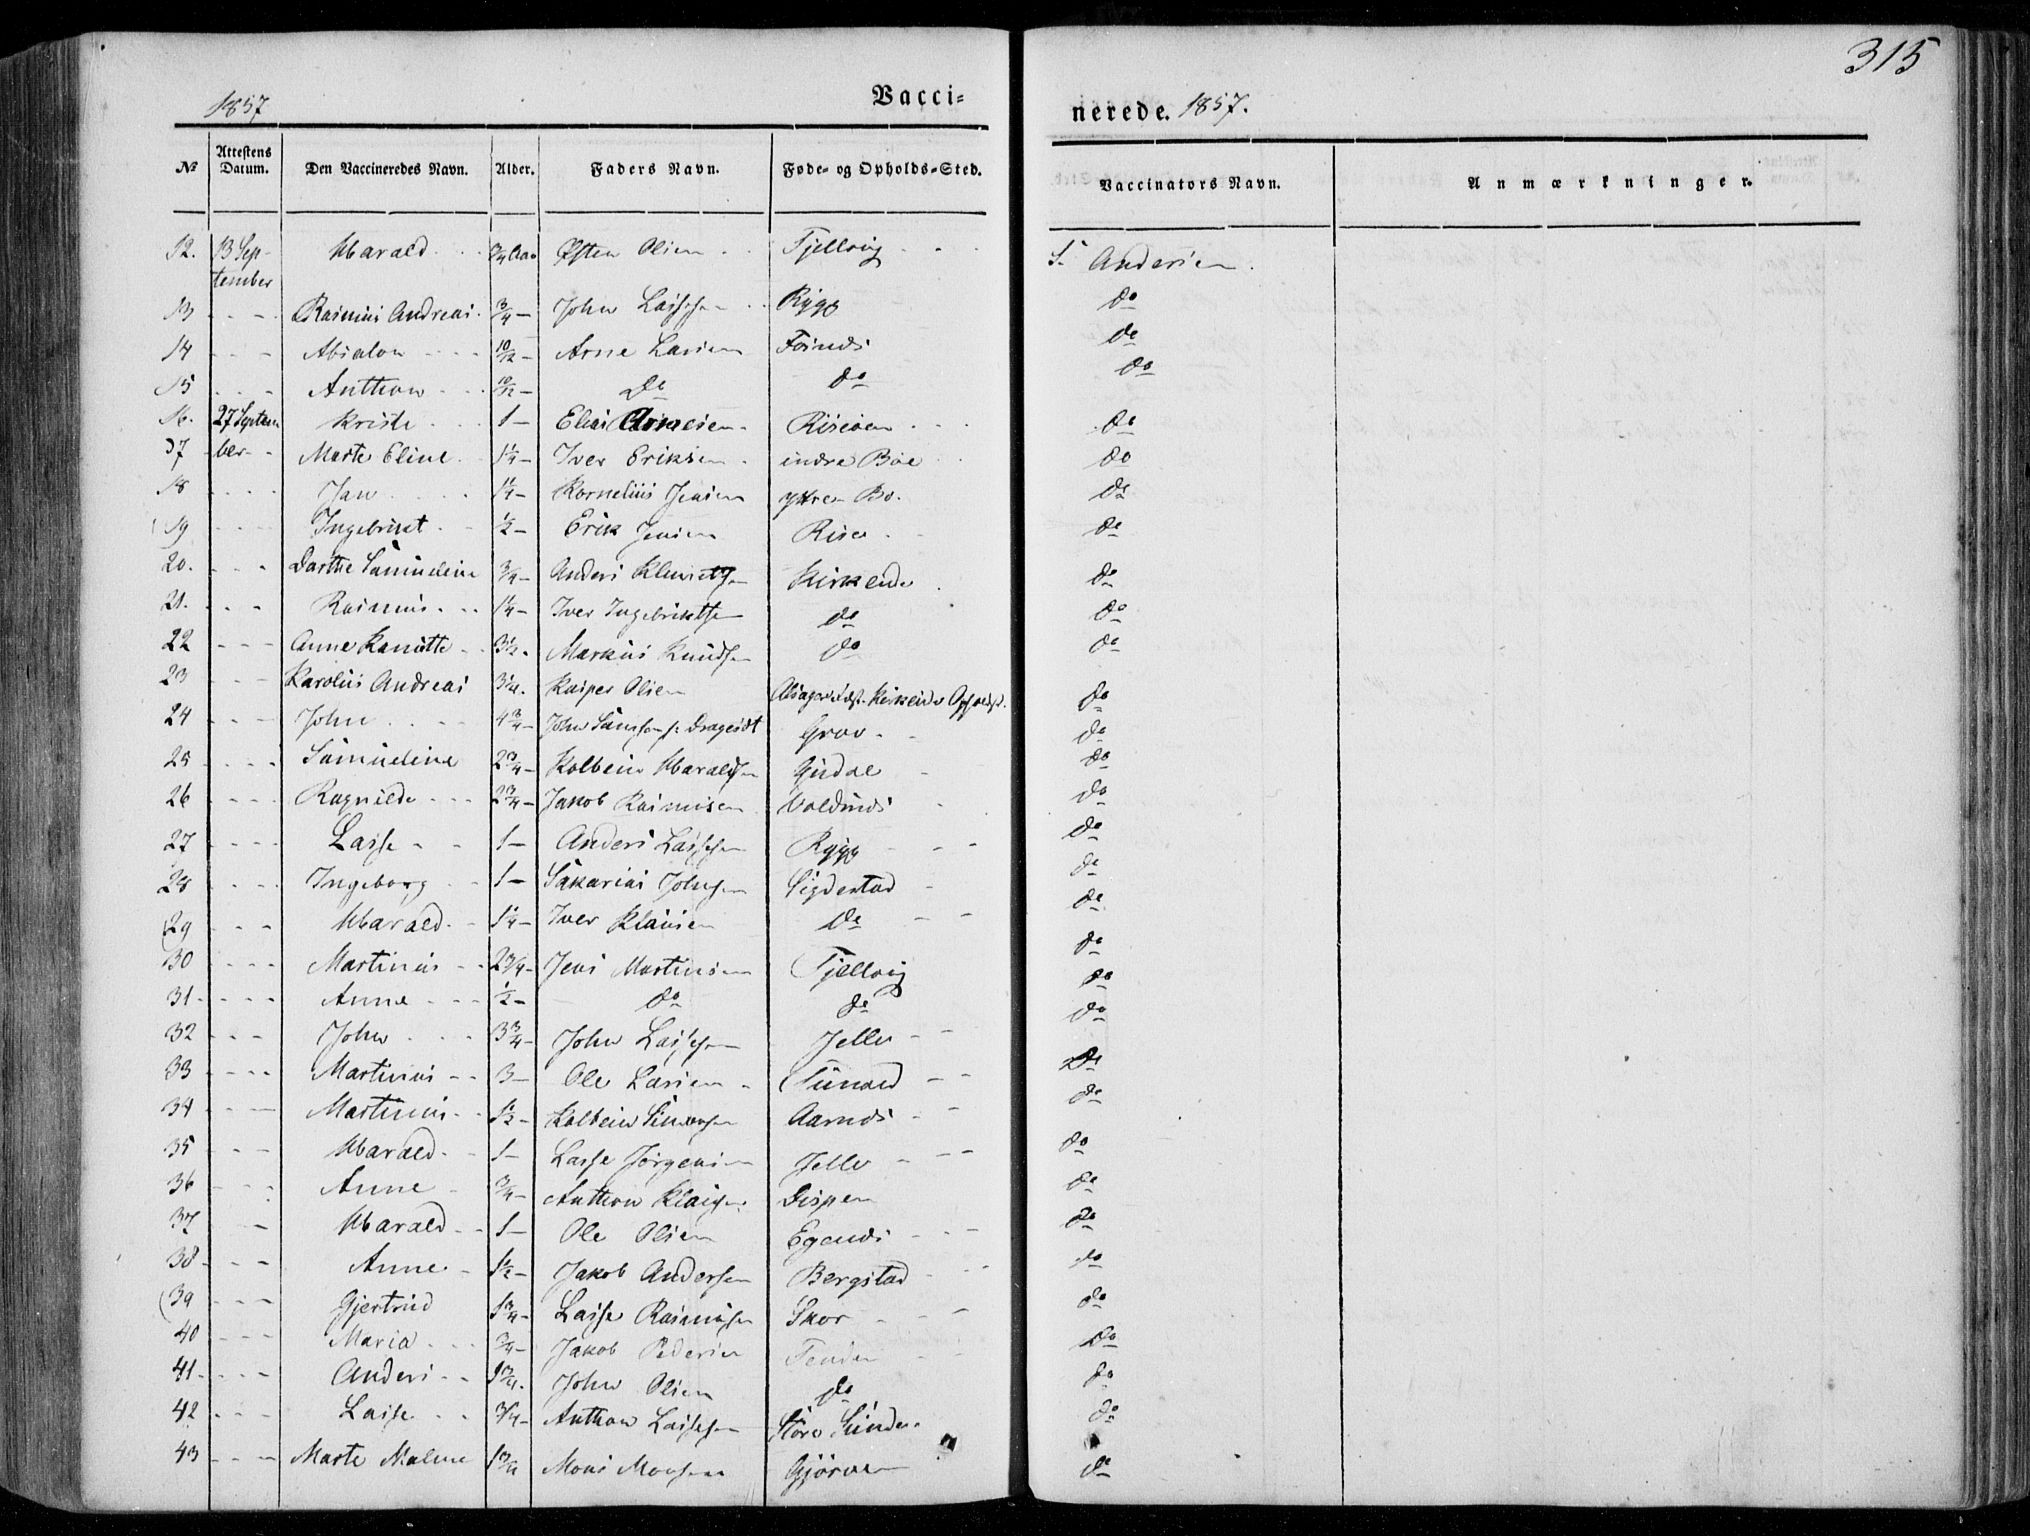 315
1857 Vacci=
nerede. 1857.
No Attestens Datum. Den Vaccineredes Navn. Alder. Faders Navn. Føde- og Opholds-Sted. Vaccinators Navn. Anmærkninger.
12. 13 Sep- Harald 3/4 Aar Østen Olsen Fjellvig S. Andersen.
tember
13 - - Rasmus Andreas 3/4 - John Lassesen Rygg do
14 - - Absalon 10/12 - Arne Larsen do
15 - - Anthon 10/12 - Do do do
16. 27 Septem Kriste 1 - Elias do
17 ber - Marte Eline 1 1/4 - Iver Eriksen indre Bøe do
18 - - Jan 1 1/4 - Kornelius Jensen yttre Bø. do
19 - - Ingebrigt 1/2 - Erik Jensen Rise do
20. - - Dorthe Samueline 3/4 - Anders Kirkeide do
21. - - Rasmus 1 1/4 - Iver Ingebrigtsen do do
22 - - Anne 3 1/2 - Markus Knudsen do do
23 - - Karolus Andreas 3 1/4 - Kasper Olsen Kirkeide do
24 - - John 4 3/4 - John Grov do
25 - - Samueline 2 3/4 - Kolbein Haraldsen Gudal do
26 - - Ragnilde 2 3/4 - Jakob Rasmussen do
27 - - Lasse 1 - Anders Lassesen Rygg do
28 - - Ingeborg 1 - Sakarias Johnsen Sigdestad do
29 - - Harald 1 1/4 - Iver Klausen Do do
30 - - Martinus 2 3/4 - Jens Martinsen Fjellvig do
31 - - Anne 1/2 - do do do
32 - - John 3 3/4 - John Lassesen Jelle do
33 - - Martinus 3 - Ole Larsen do
34 - - Martinus 1 1/2 - Kolbein Simonsen Aarnæs do
35 - - Harald 1 - Lasse Jørgensen Jelle do
36 - - Anne 3/4 - Anthon Klausen Dispen do
37 - - Harald 1 - Ole Olsen Egenæs do
38 - - Anne 1 1/2 - Jakob Andersen Bergstad do
39 - - Gjertrud 1 3/4 - Lasse Rasmussen Skor do
40 - - Maria 3/4 - Jakob Pedersen do
41 - - Anders 1 3/4 - John Olsen do do
42 - - Lasse 3/4 - Anthon Lassesen Støre do
43 - - Marte Malene 1 3/4 Mons Monsen Gjørven do